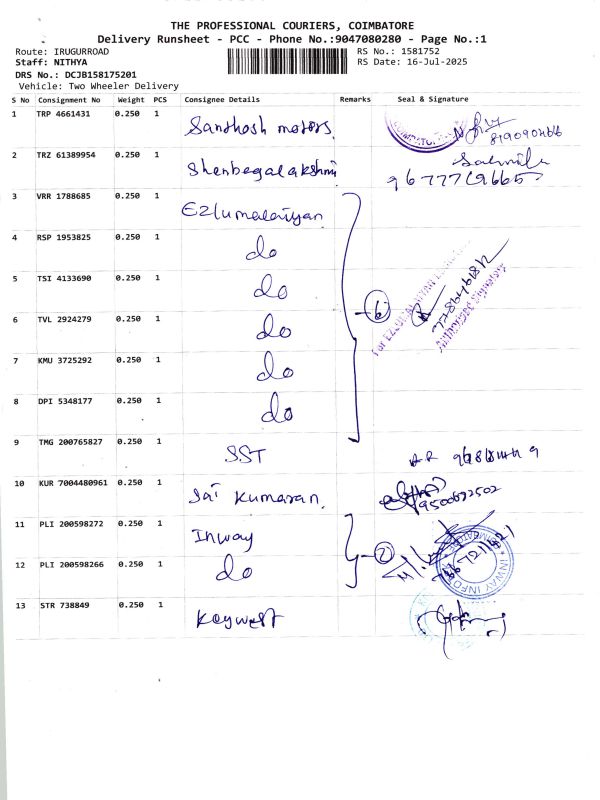 THE PROFESSIONAL COURIERS, COIMBATORE
Delivery Runsheet - PCC - Phone No.:9047080280 - Page No.:1
Route: IRUGURROAD
RS No.: 1581752
Staff: NITHYA
RS Date: 16-Jul-2025
DRS No.: DCJB158175201
Vehicle: Two Wheeler Delivery
S No Consignment No Weight PCS Consignee Details Remarks Seal & Signature
1 TRP 4661431 0.250 1 Santhosh motors.
2 TRZ 61389954 0.250 1 Shenbagalakshmi
3 VRR 1788685 0.250 1 Ezlumalaiyan
4 RSP 1953825 0.250 1 do
5 TSI 4133690 0.250 1 do
6 TVL 2924279 0.250 1 do 6
7 KMU 3725292 0.250 1 do
8 DPI 5348177 0.250 1 do
Authorised Signatory
9 TMG 200765827 0.250 1 SST
10 KUR 7004480961 0.250 1 Sai Kumaran. 9500672502
11 PLI 200598272 0.250 1 Inway
2
12 PLI 200598266 0.250 1 do
INWAY INFO
13 STR 738849 0.250 1 Keywest